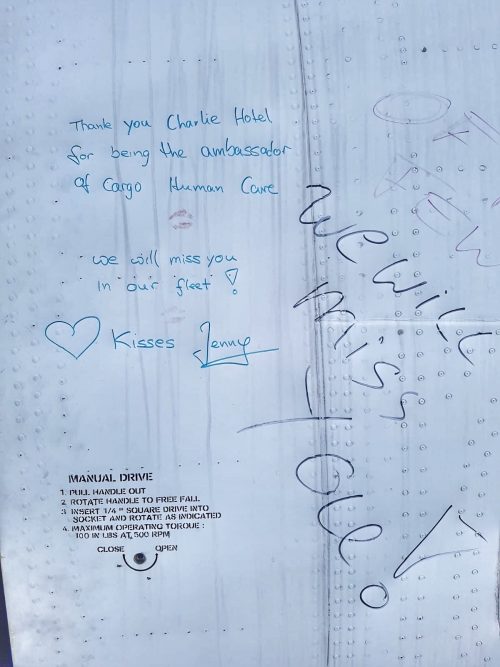 Thank you Charlie Hotel
for being the ambassador
of Cargo Human Care
we will miss you
in our fleet!
Kisses Jenny
we will
miss
you!
MANUAL DRIVE
1. PULL HANDLE OUT
2. ROTATE HANDLE TO FREE FALL
3. INSERT 1/4 " SQUARE DRIVE INTO
SOCKET AND ROTATE AS INDICATED
4. MAXIMUM OPERATING TORQUE :
100 IN LBS AT 500 RPM
CLOSE OPEN